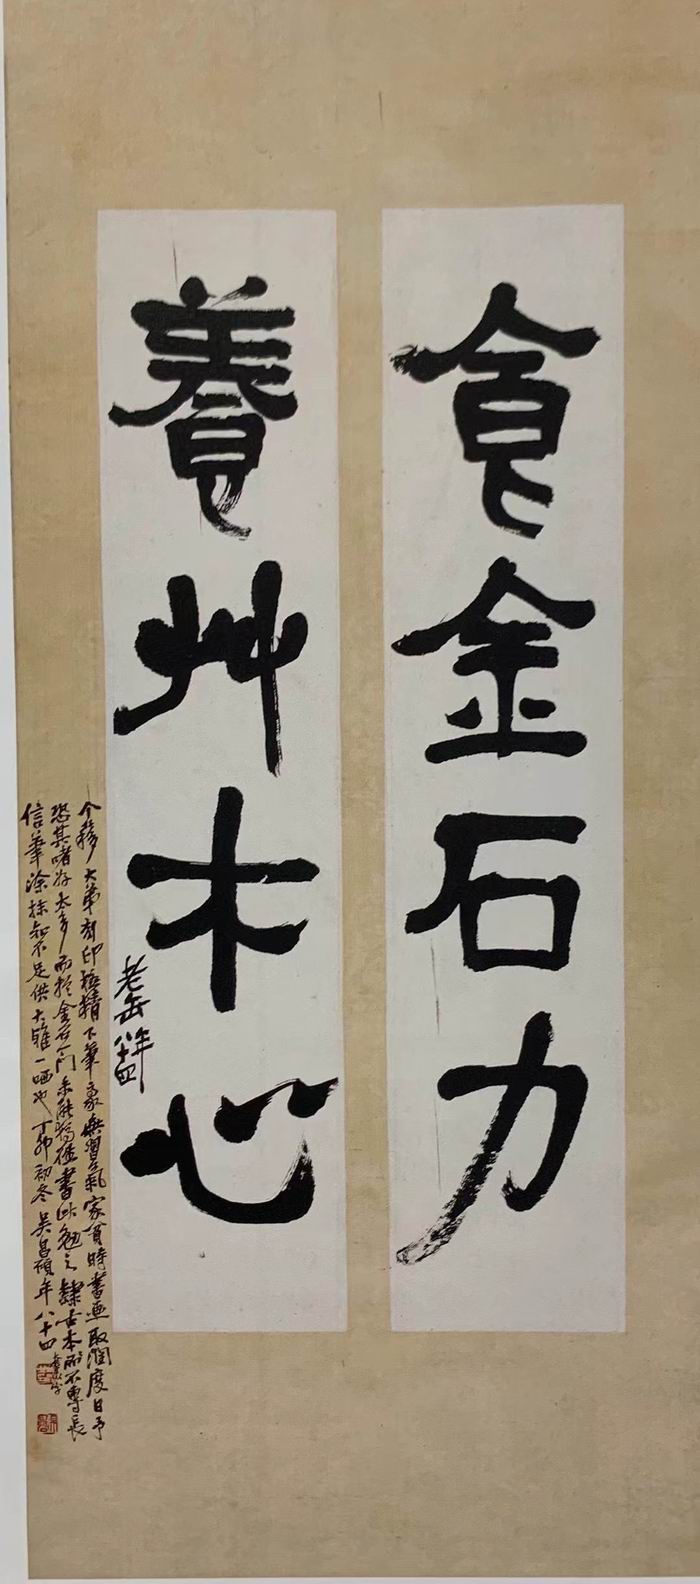 食金石力
養艸木心
老缶年八十四
个簃大弟刻印極精下筆豪無習氣家貧時書畫取潤度日予
恐其嗜好太多而於金石合門未能 書此勉之隸古本所不專長
信筆塗抹知不足供大雅一哂也丁卯初冬吳昌碩年八十四